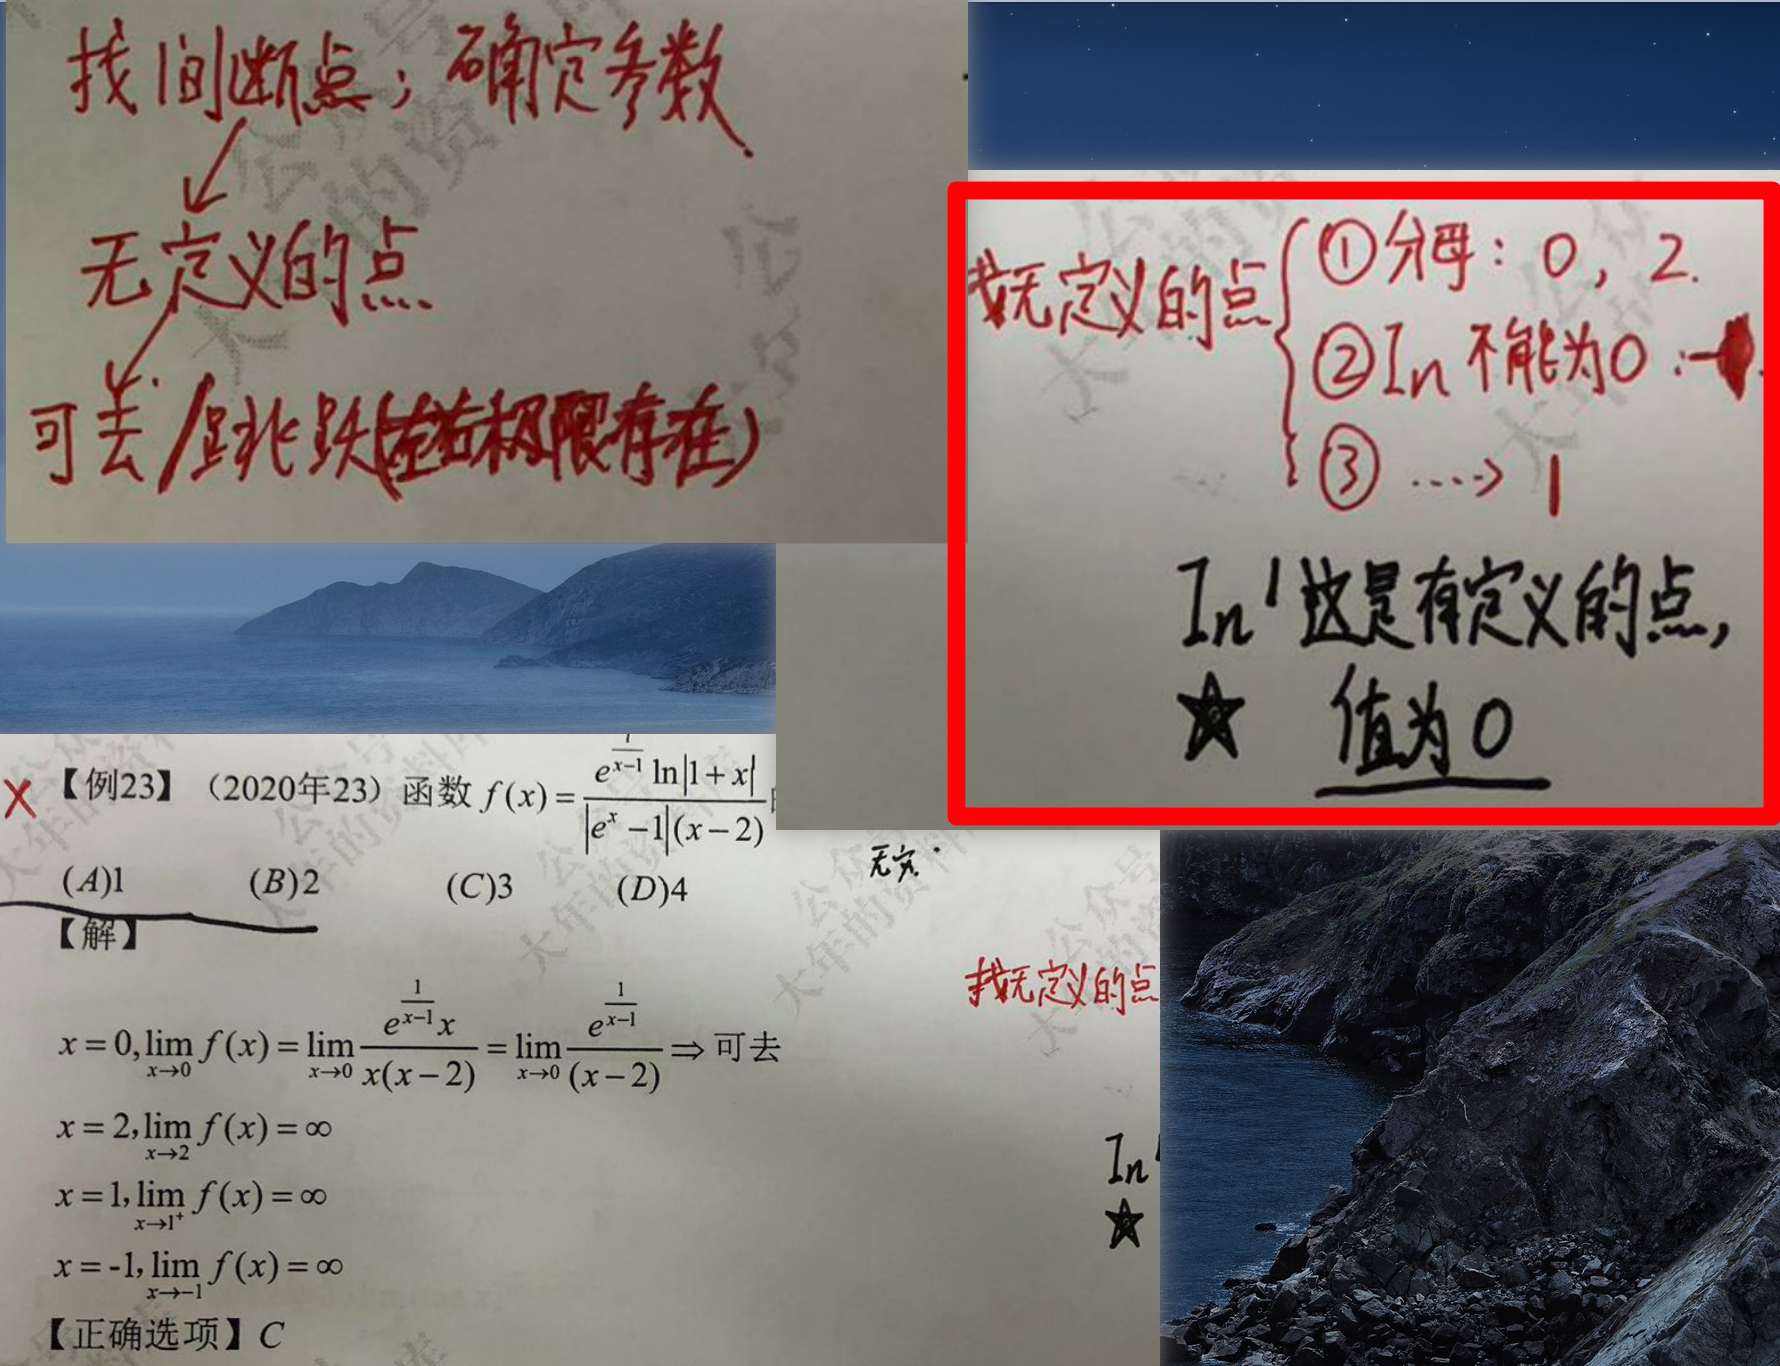 找间断点；确定参数.
无定义的点.
可去/跳跃(左右极限存在)
找无定义的点
①分母：0，2.
②In 不能为0：-
③ ....→ 1
In 1 这是有定义的点，
★ 值为0
× 【例23】（2020年23）函数 f(x)= e^{1/(x-1)} ln|1+x| / |e^x -1|(x-2)
无定.
(A)1 (B)2 (C)3 (D)4
【解】
找无定义的点
x = 0, lim_{x→0} f(x) = lim_{x→0} e^{1/(x-1)} x / x(x-2) = lim_{x→0} e^{1/(x-1)} / (x-2) ⇒ 可去
x = 2, lim_{x→2} f(x) = ∞
In
x = 1, lim_{x→1⁺} f(x) = ∞
★
x = -1, lim_{x→-1} f(x) = ∞
【正确选项】C